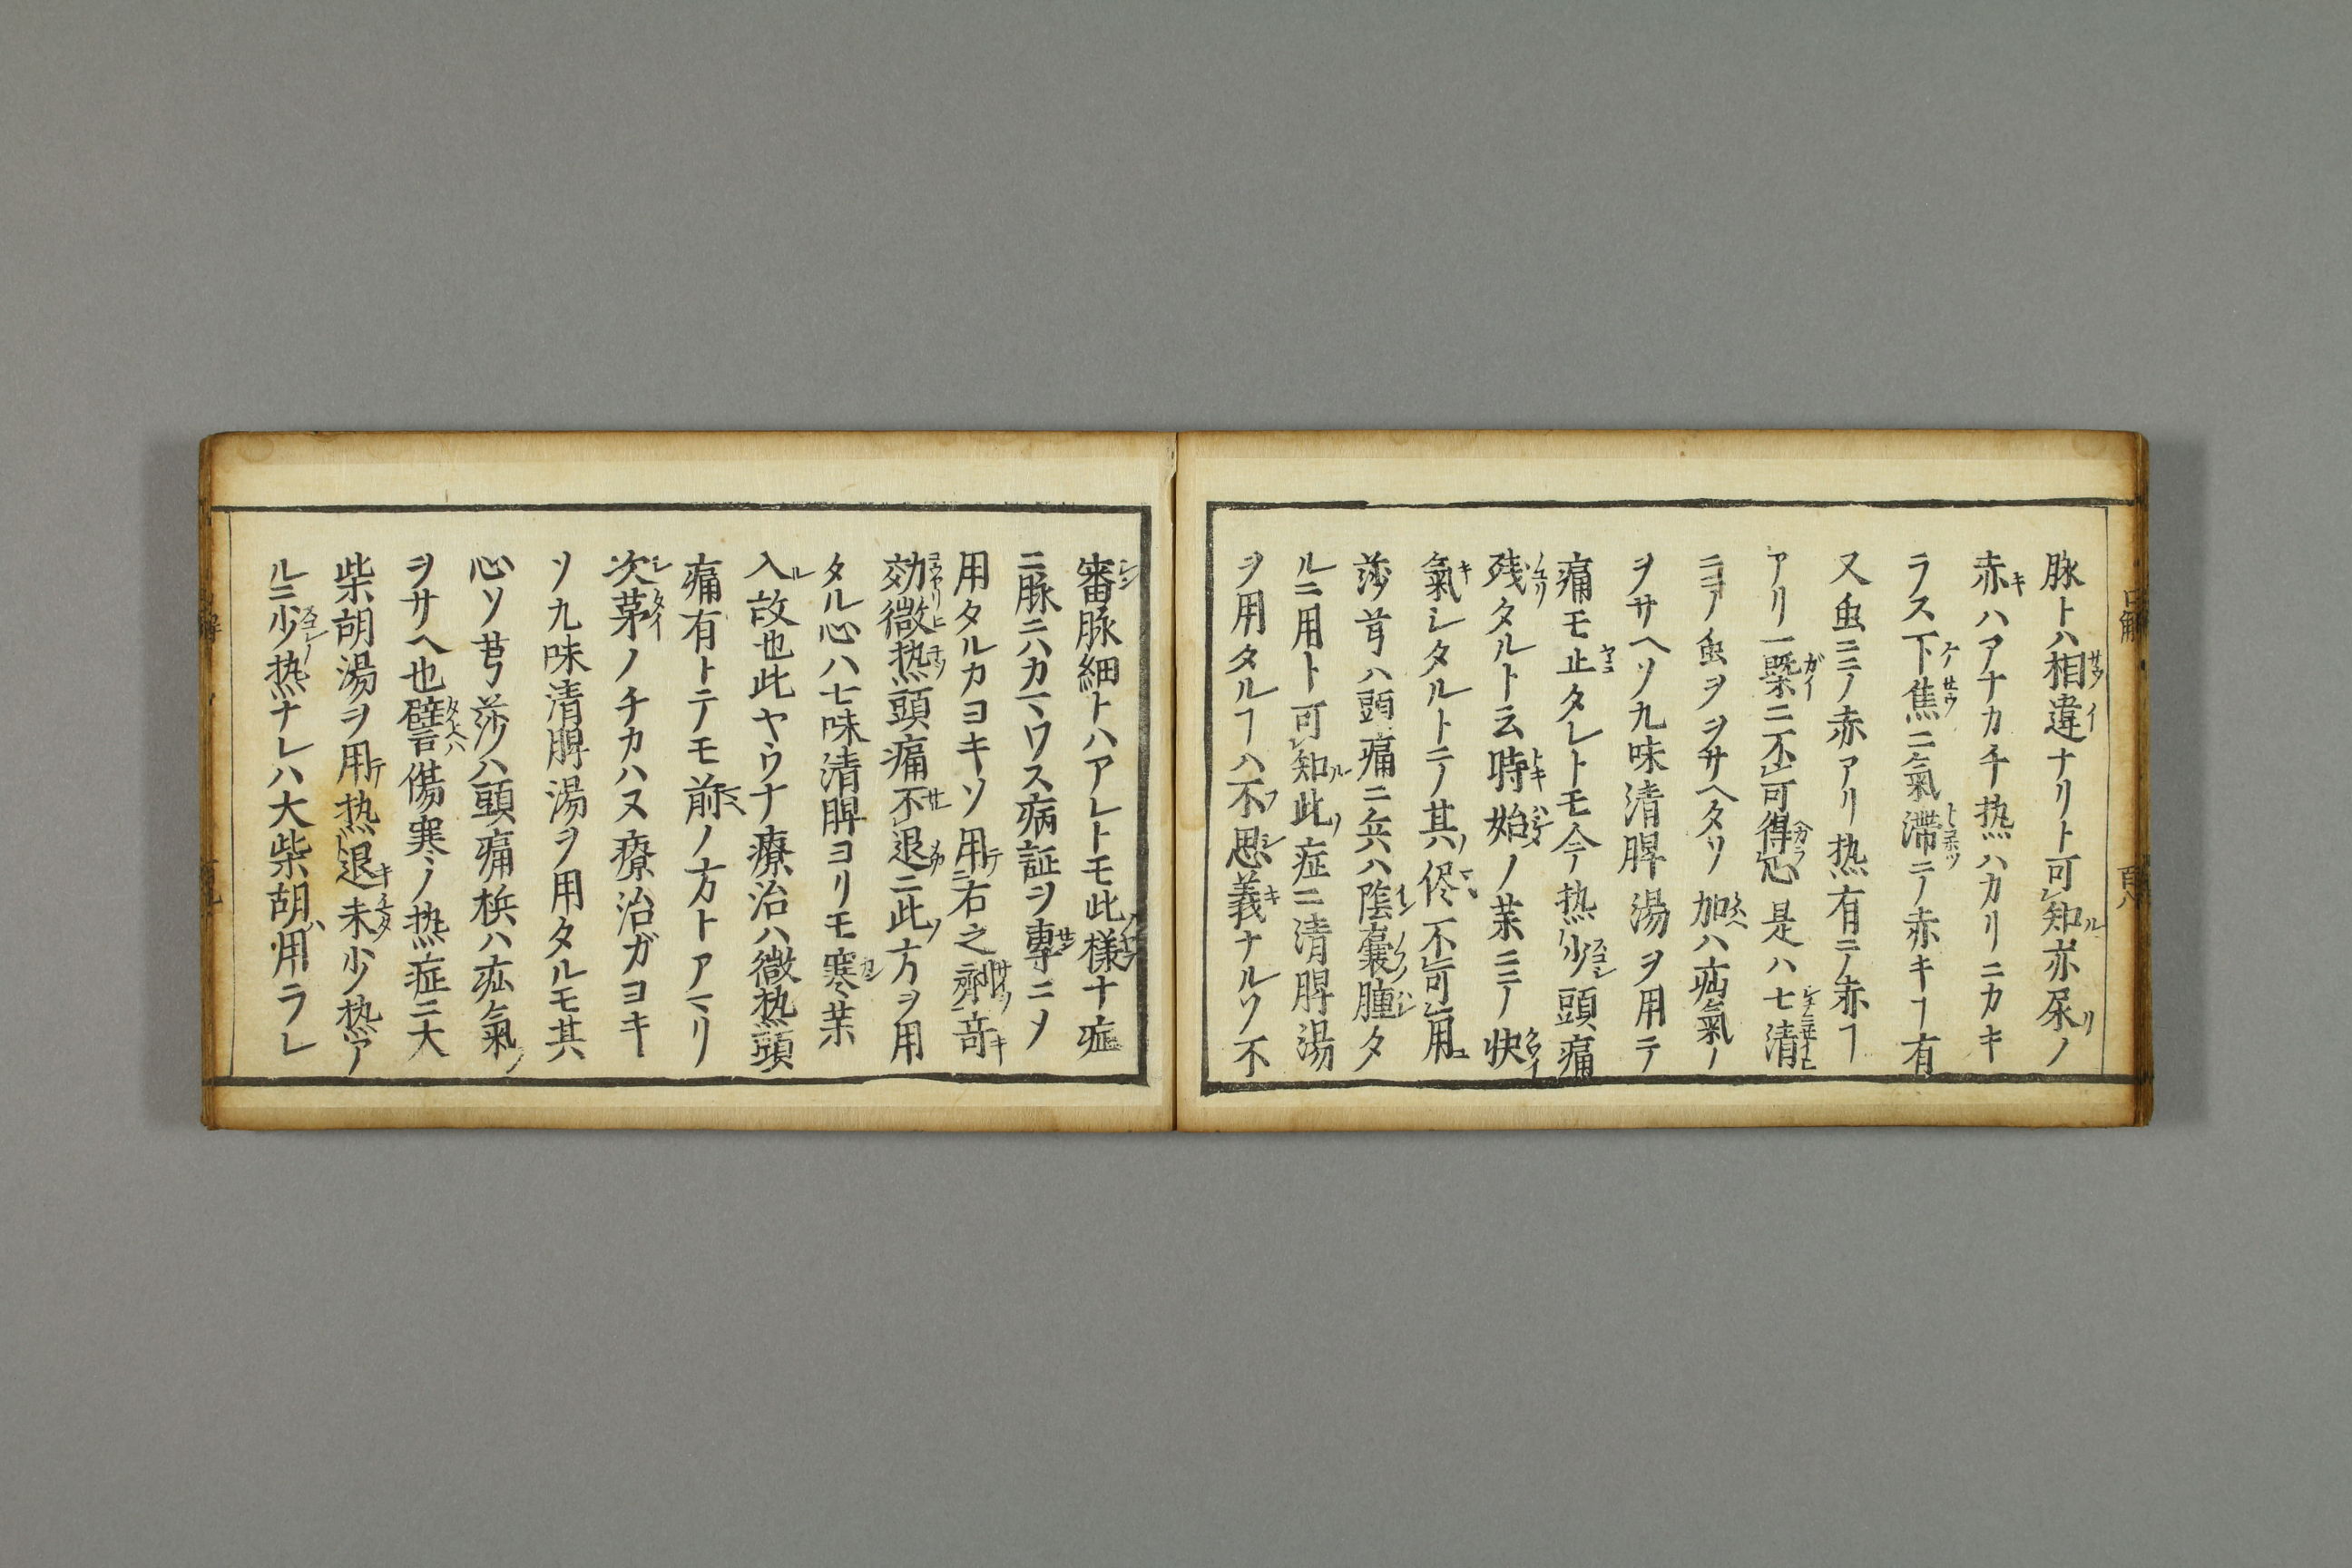 脉トハ相違ナリト可知亦尿ノ
赤ハアナカチ热ハカリニカキ
ラス下焦ニ氣滞テ赤キヿ有
又虫ニテ赤アリ热有テ赤ヿ
アリ一槩ニ不可得心是ハ七清
ニテ虫ヲヲサヘタリ加ハ疝氣
ヲサヘソ九味清脾湯ヲ用テ
痛モ止タレトモ今热少頭痛
残タルト云時始ノ藥ニテ快
氣シタルトテ其侭不可用
莎芎ハ頭痛ニ兵ハ陰嚢腫タ
ルニ用ト可知此症ニ清脾湯
ヲ用タルヿハ不思義ナルソ不
審脉細トハアレトモ此様ナ症
ニ脉ニハカマワス病証ヲ專ニメ
用タルカヨキソ用右之劑竒
効微热頭痛不退ニ此方ヲ用
タル心ハ七味清脾ヨリモ寒藥
入故也此ヤウナ療治ハ微热頭
痛有トテモ前ノ方トアマリ
次苐ノチカハヌ療治ガヨキ
ソ九味清脾湯ヲ用タルモ其
心ソ芎莎ハ頭痛梹ハ疝氣
ヲサヘ也譬傷寒ノ热症ニ大
柴胡湯ヲ用热退未少热ア
ルニ少热ナレハ大柴胡用ラレ
口解
百八